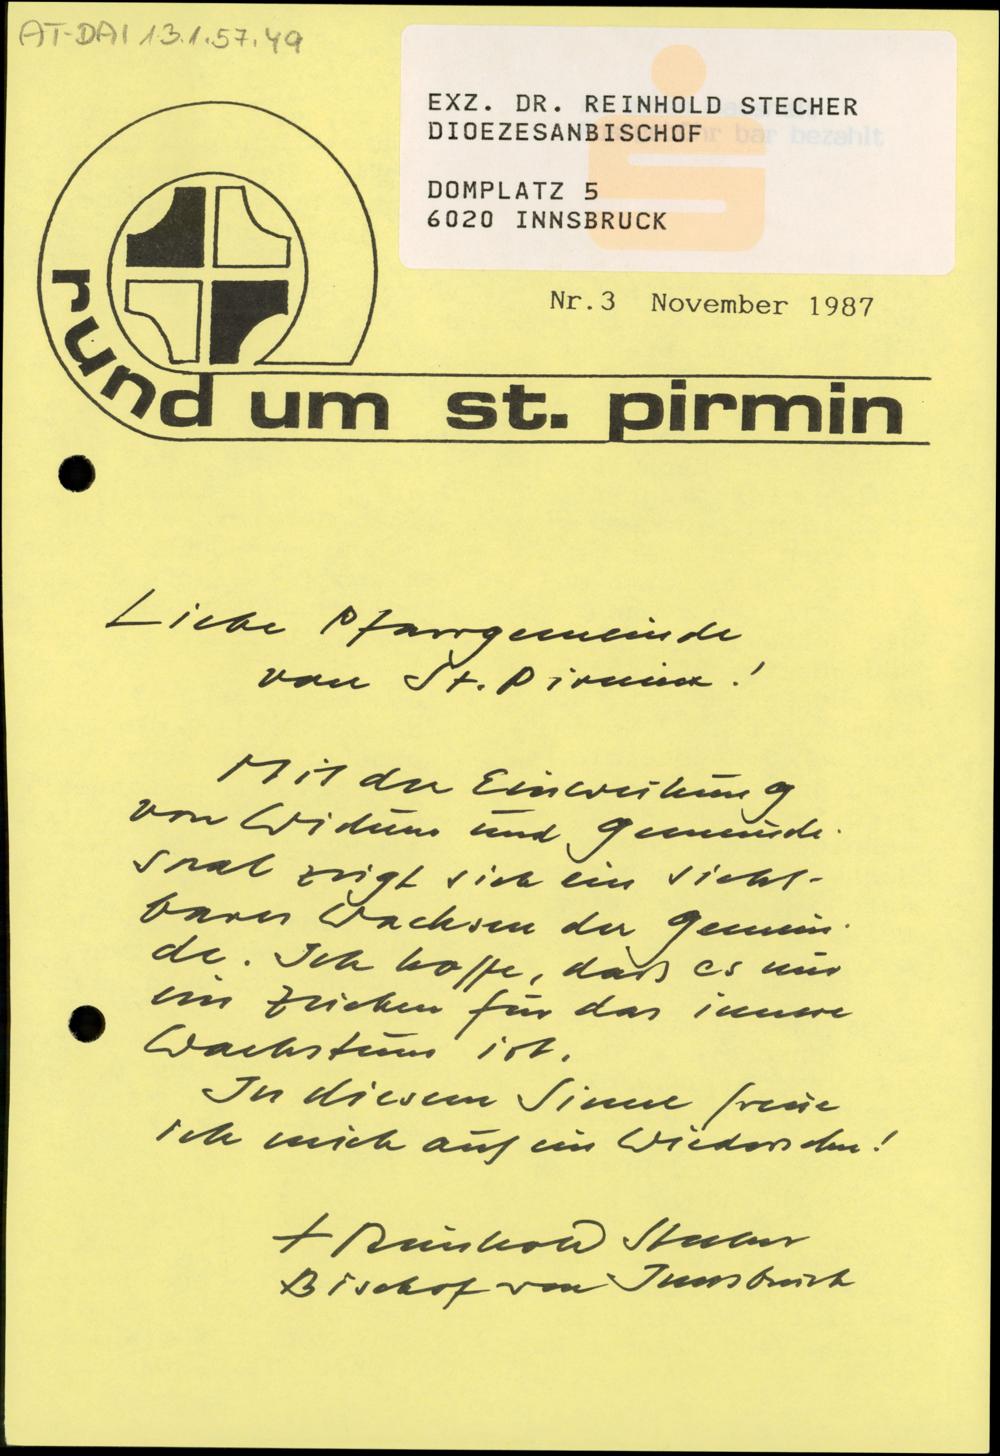 AT-DAI 13.1.57.49
EXZ. DR. REINHOLD STECHER
DIOEZESANBISCHOF
bar bezahlt
DOMPLATZ 5
6020 INNSBRUCK
Nr.3 November 1987
rund um st. pirmin
Liebe Pfarrgemeinde
von St. Pirmin!
Mit der Einweihung
von Widum und Gemeinde-
saal zeigt sich ein sicht-
bares Wachsen der Gemein-
de. Ich hoffe, daß es nur
ein Zeichen für das innere
Wachstum ist.
In diesem Sinne freue
ich mich auf ein Wiedersehn!
+ Reinhold Stecher
Bischof von Innsbruck